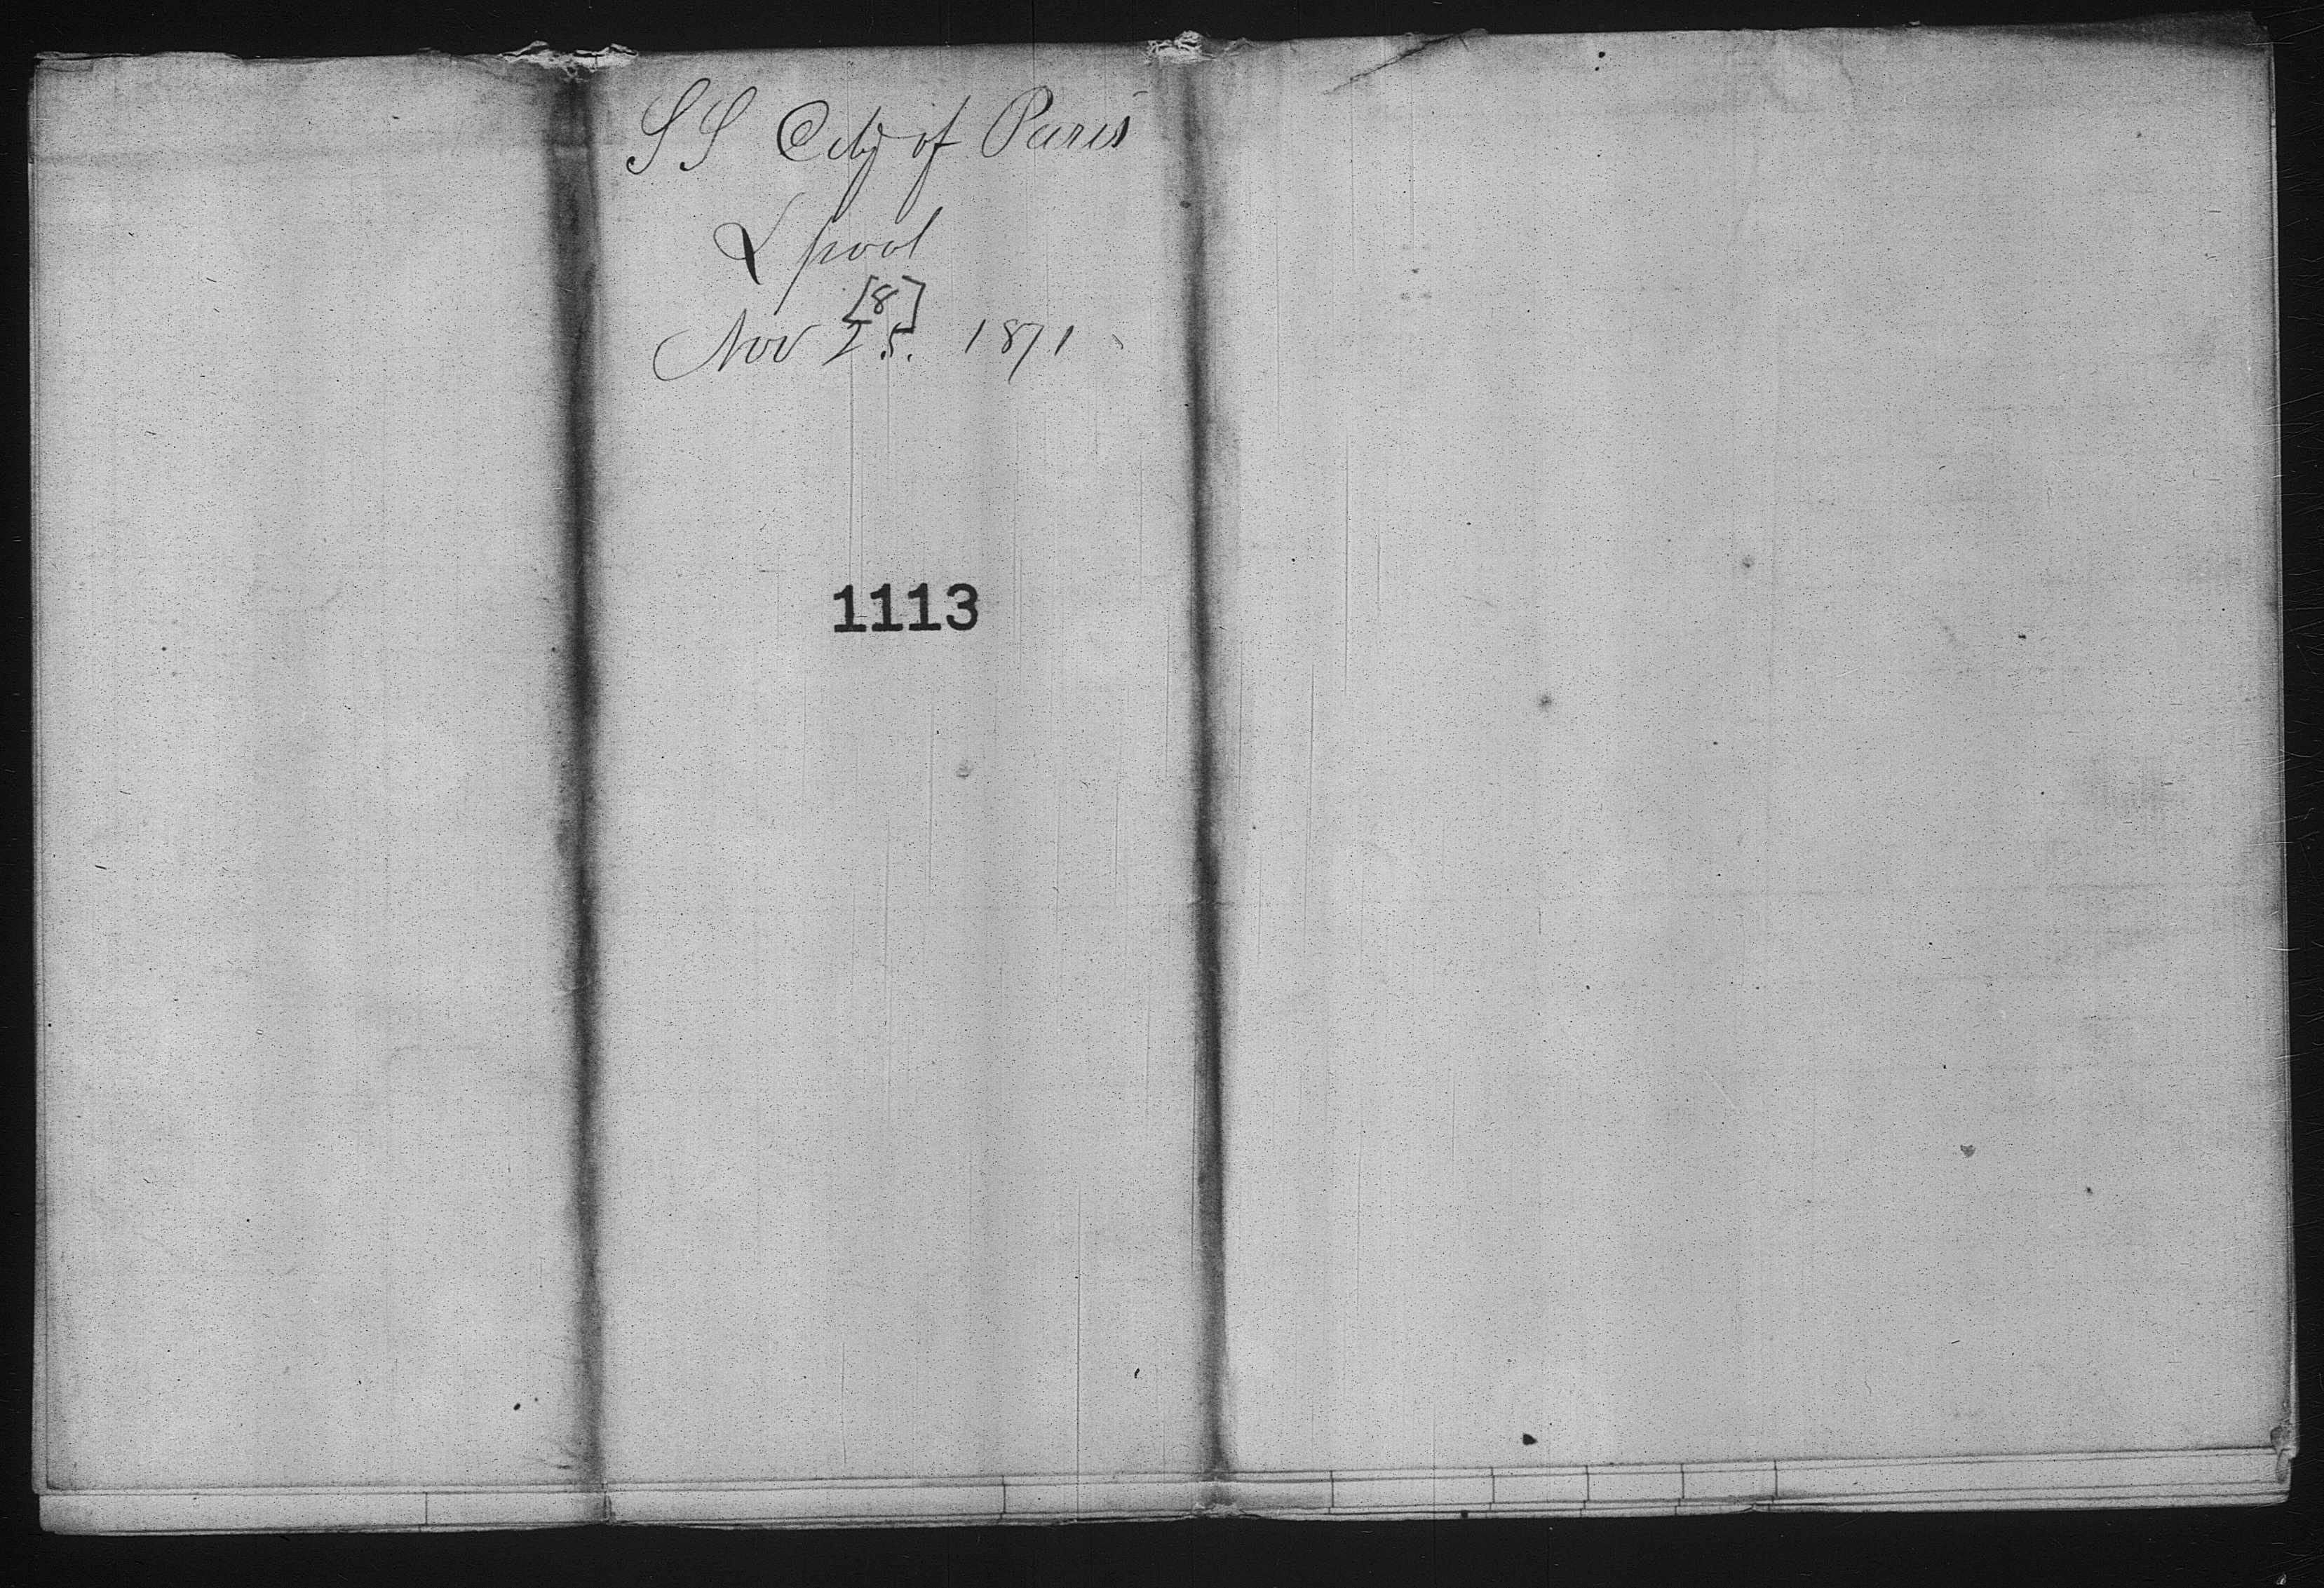 SS City of Paris
Lpool
[8]
Nov 25. 1871
1113